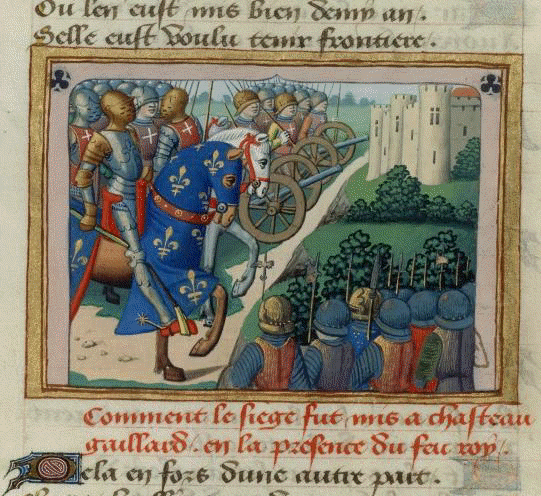 Ou len eust mis bien demy an/.
Selle eust voulu tenir frontiere.
Comment le siege fut mis a chasteau
gaillard. en la presence du feu roy/.
Cela en fors dune autre part.